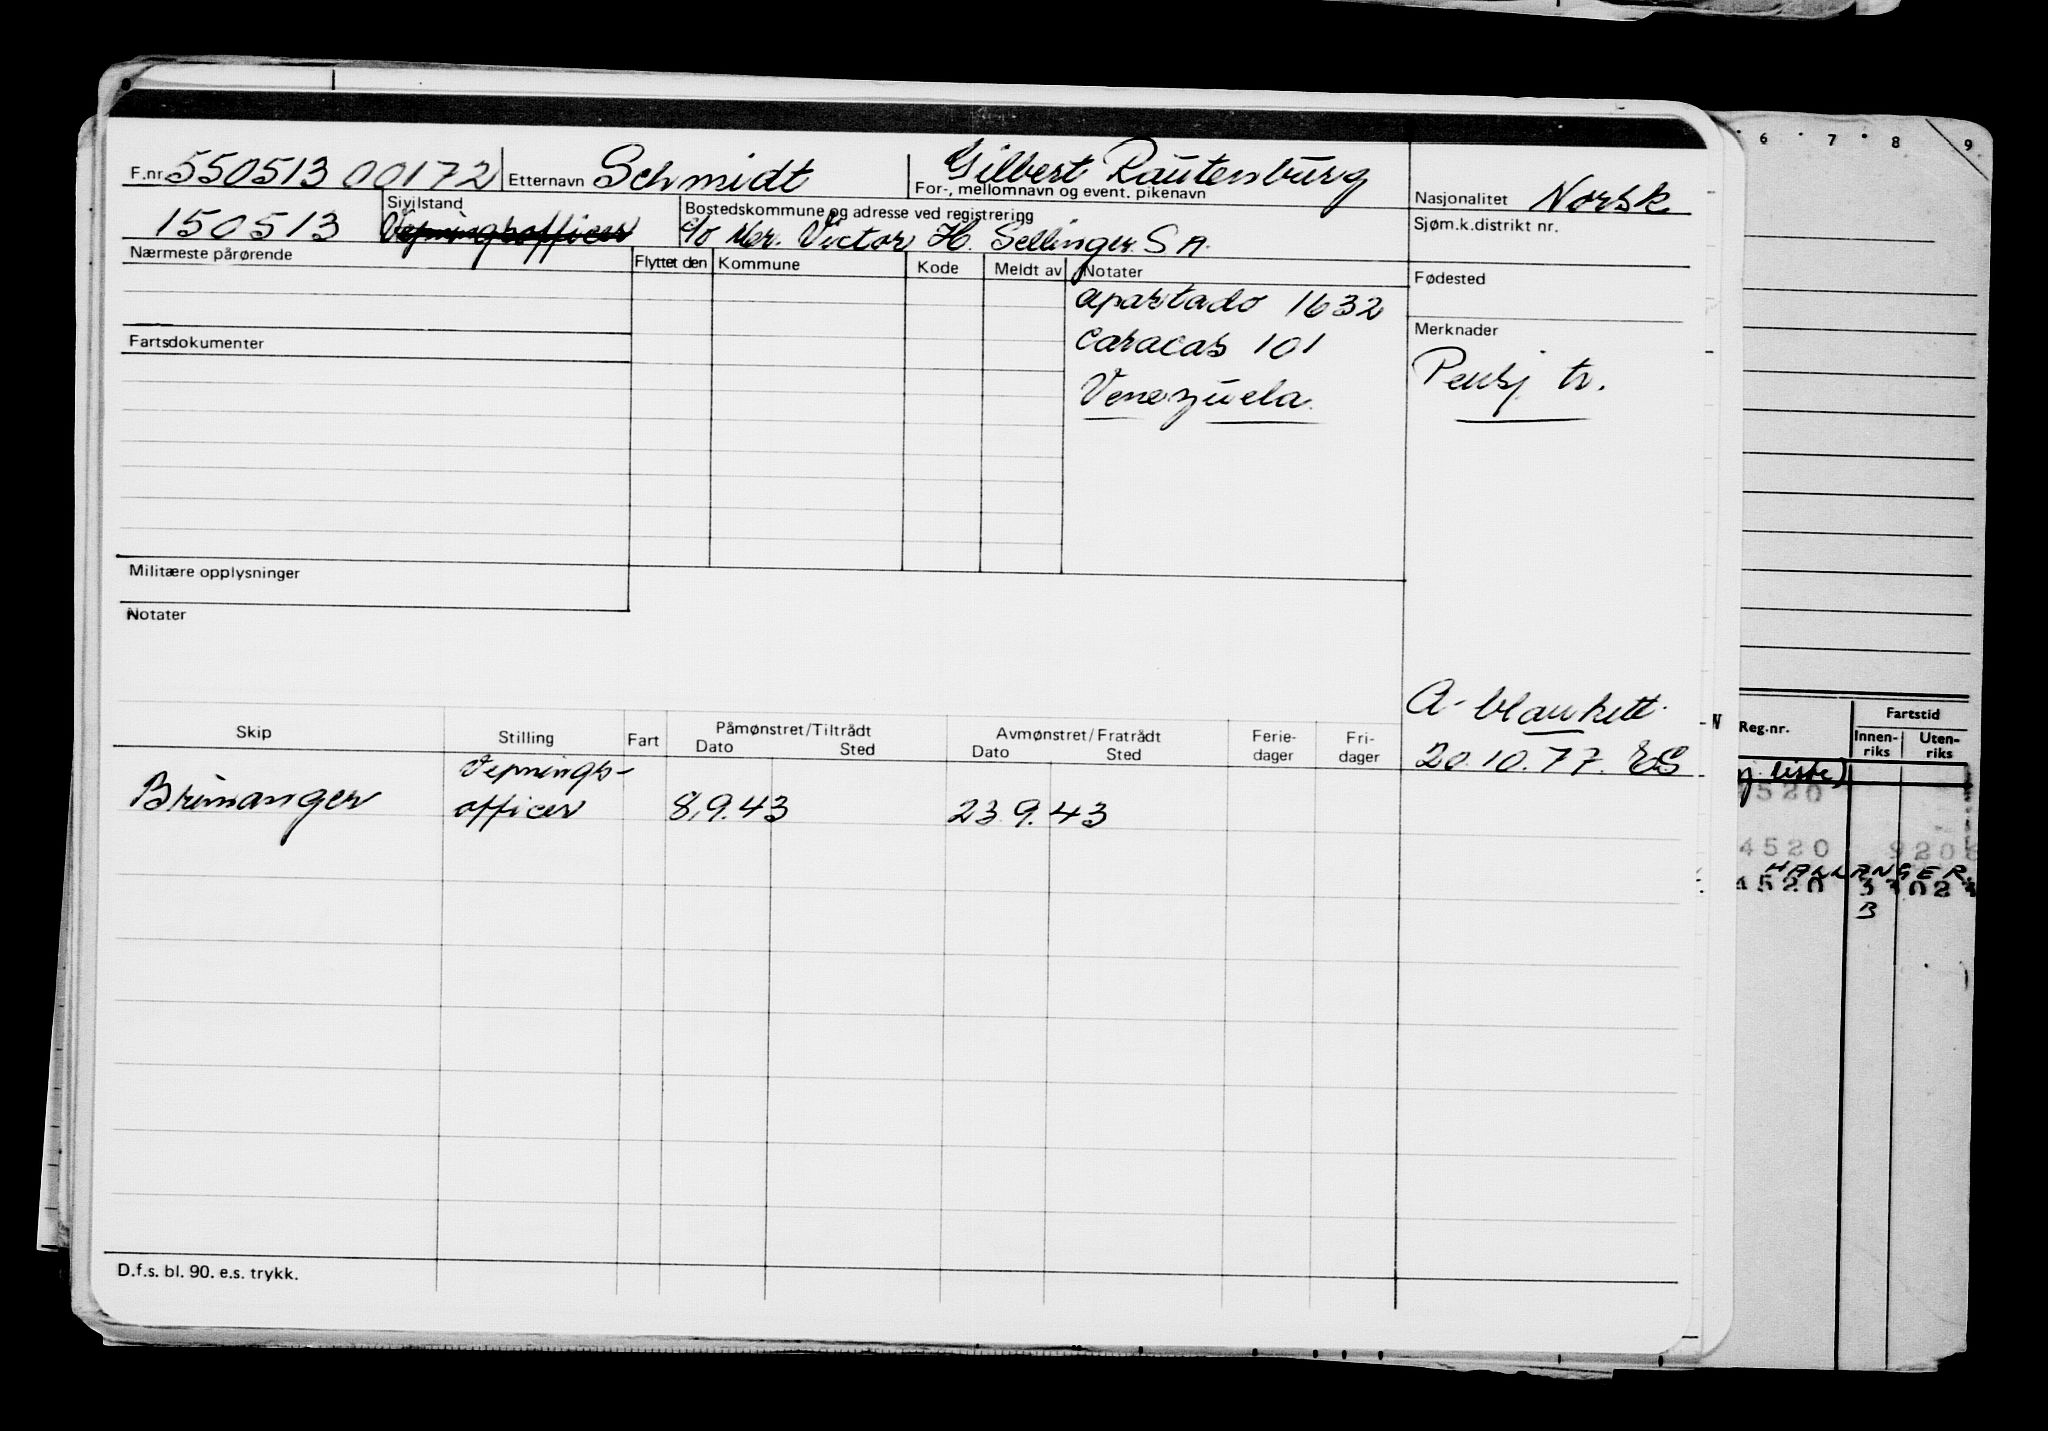 6 7 8 9
F.nr. 550513 00172 Etternavn Schmidt Gilbert Rautenburg
For-, mellomnavn og event. pikenavn
Nasjonalitet Norsk
150513 Sivilstand Vepningsofficer
Bostedskommune og adresse ved registrering
c/o Mr. Victor H. Sellinger S A.
Sjøm.k.distrikt nr.
Nærmeste pårørende Flyttet den Kommune Kode Meldt av Notater
Fødested
apartado 1632
caracas 101
Venezuela.
Merknader
Pensj tr.
Fartsdokumenter
Militære opplysninger
Notater
A-blankett
20.10.77. ES
Skip Stilling Fart Påmønstret/Tiltrådt Dato Sted Avmønstret/Fratrådt Dato Sted Ferie-dager Fri-dager
Brimanger Vepnings-
officer 8.9.43 23.9.43
D.f.s. bl. 90. e.s. trykk.
Reg.nr. Fartstid
Innen-riks Uten-riks
liste)
4520
4520
HALLANGER
4520
B